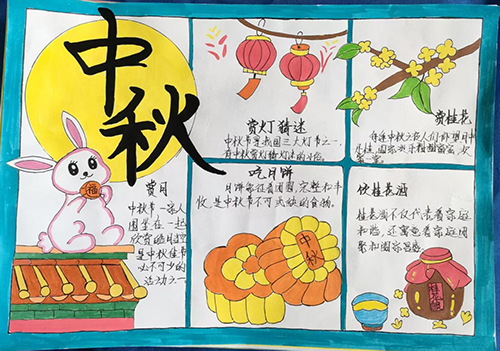 中秋
福
赏月
中秋节一家人
围坐在一起
欣赏皓月当空
是中秋佳节
必不可少的
活动之一
赏灯猜迷
中秋节是我国三大灯节之一,
有中秋赏灯猜灯迷的习俗。
赏桂花
每逢中秋之夜人们仰望月中
吃月饼
月饼象征着团圆,完整和丰
收,是中秋节不可或缺的食物。
中秋
饮桂花酒
桂花酒不仅代表着家庭
和谐,还寓意着家庭团
聚和团圆幸福。
桂花酒